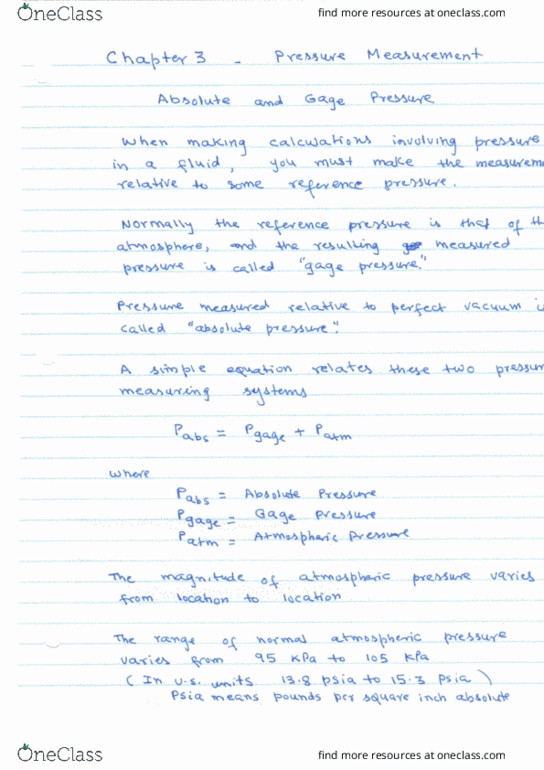 OneClass
find more resources at oneclass.com
Chapter 3 - Pressure Measurement
Absolute and Gage Pressure
When making calculations involving pressure
in a fluid, you must make the measureme
relative to some reference pressure.
Normally the reference pressure is that of th
atmosphere, and the resulting measured
pressure is called "gage pressure."
Pressure measured relative to perfect vacuum i
called "absolute pressure".
A simple equation relates these two pressur
measuring systems
Pabs = Pgage + Patm
where
Pabs = Absolute Pressure
Pgage = Gage Pressure
Patm = Atmospheric Pressure
The magnitude of atmospheric pressure varies
from location to location
The range of normal atmospheric pressure
varies from 95 KPa to 105 KPa
(In U.S. units 13.8 psia to 15.3 Psia)
Psia means pounds per square inch absolute
OneClass
find more resources at oneclass.com